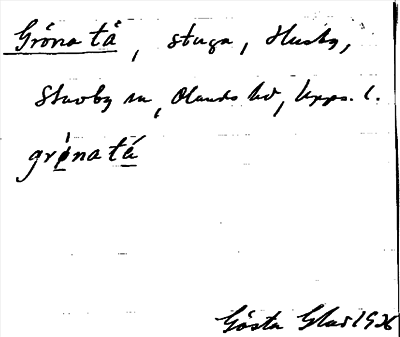 Gröna tå, stuga, Husby,
Stavby sn, Olands hd, Upps. l.
grö́na tá̱
Gösta Glas 1936